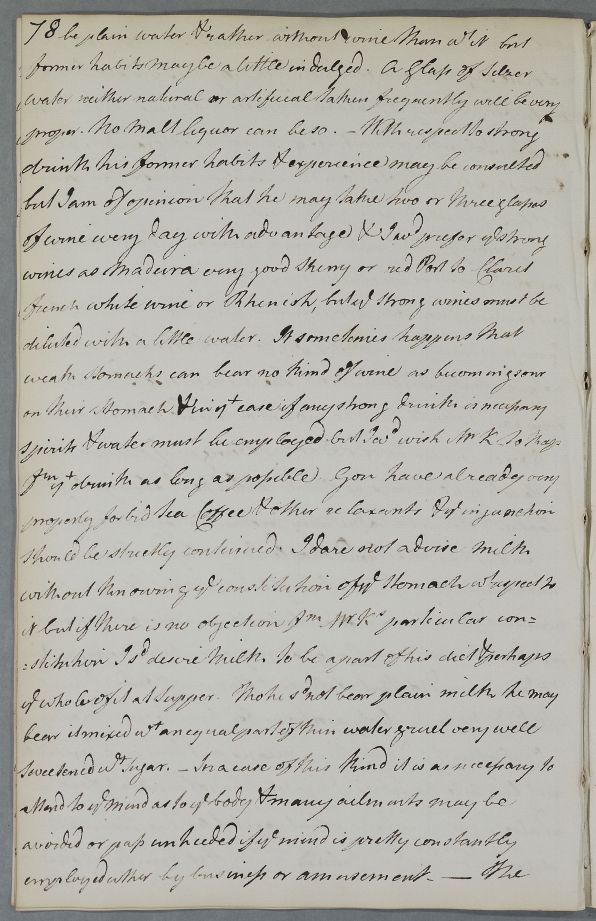 78 be plain water & rather without wine than wt it but
former habits may be a little indulged. A Glass of Selzer
water neither natural or artificial taken frequently will be very
proper. No Malt liquor can be so. – With respect to strong
drink his former habits & experience may be consulted
but I am of opinion that he may take two or three glasses
of wine every day with advantage & I wd prefer ye strong
wines as Madeira very good Sherry or red Port to Claret
french white wine or Rhenish, but ye strong wines must be
diluted with a little water. It sometimes happens that
weak stomachs can bear no kind of wine as becoming sour
on their stomach & in yt case if any strong drink is necessary
spirits & water must be employed but I wd wish Mr K to keep
fm yt drink as long as possible. You have already very
properly forbid tea Coffee & other relaxants & ye injunction
should be strictly continued. I dare not advise milk
without knowing ye constitution of ye stomach wt respect to
it but if there is no objection fm Mr Ks particular con=
=stitution I sd desire Milk to be a part of his diet & perhaps
ye whole of it at Supper. Tho he sd not bear plain milk he may
bear it mixed wt an equal part of thin water gruel very well
sweetened wt Sugar. – In a case of this kind it is as necessary to
attend to ye mind as to ye body & many ailments may be
avoided or pass unheeded if ye mind is pretty constantly
employed either by business or amusement. — The